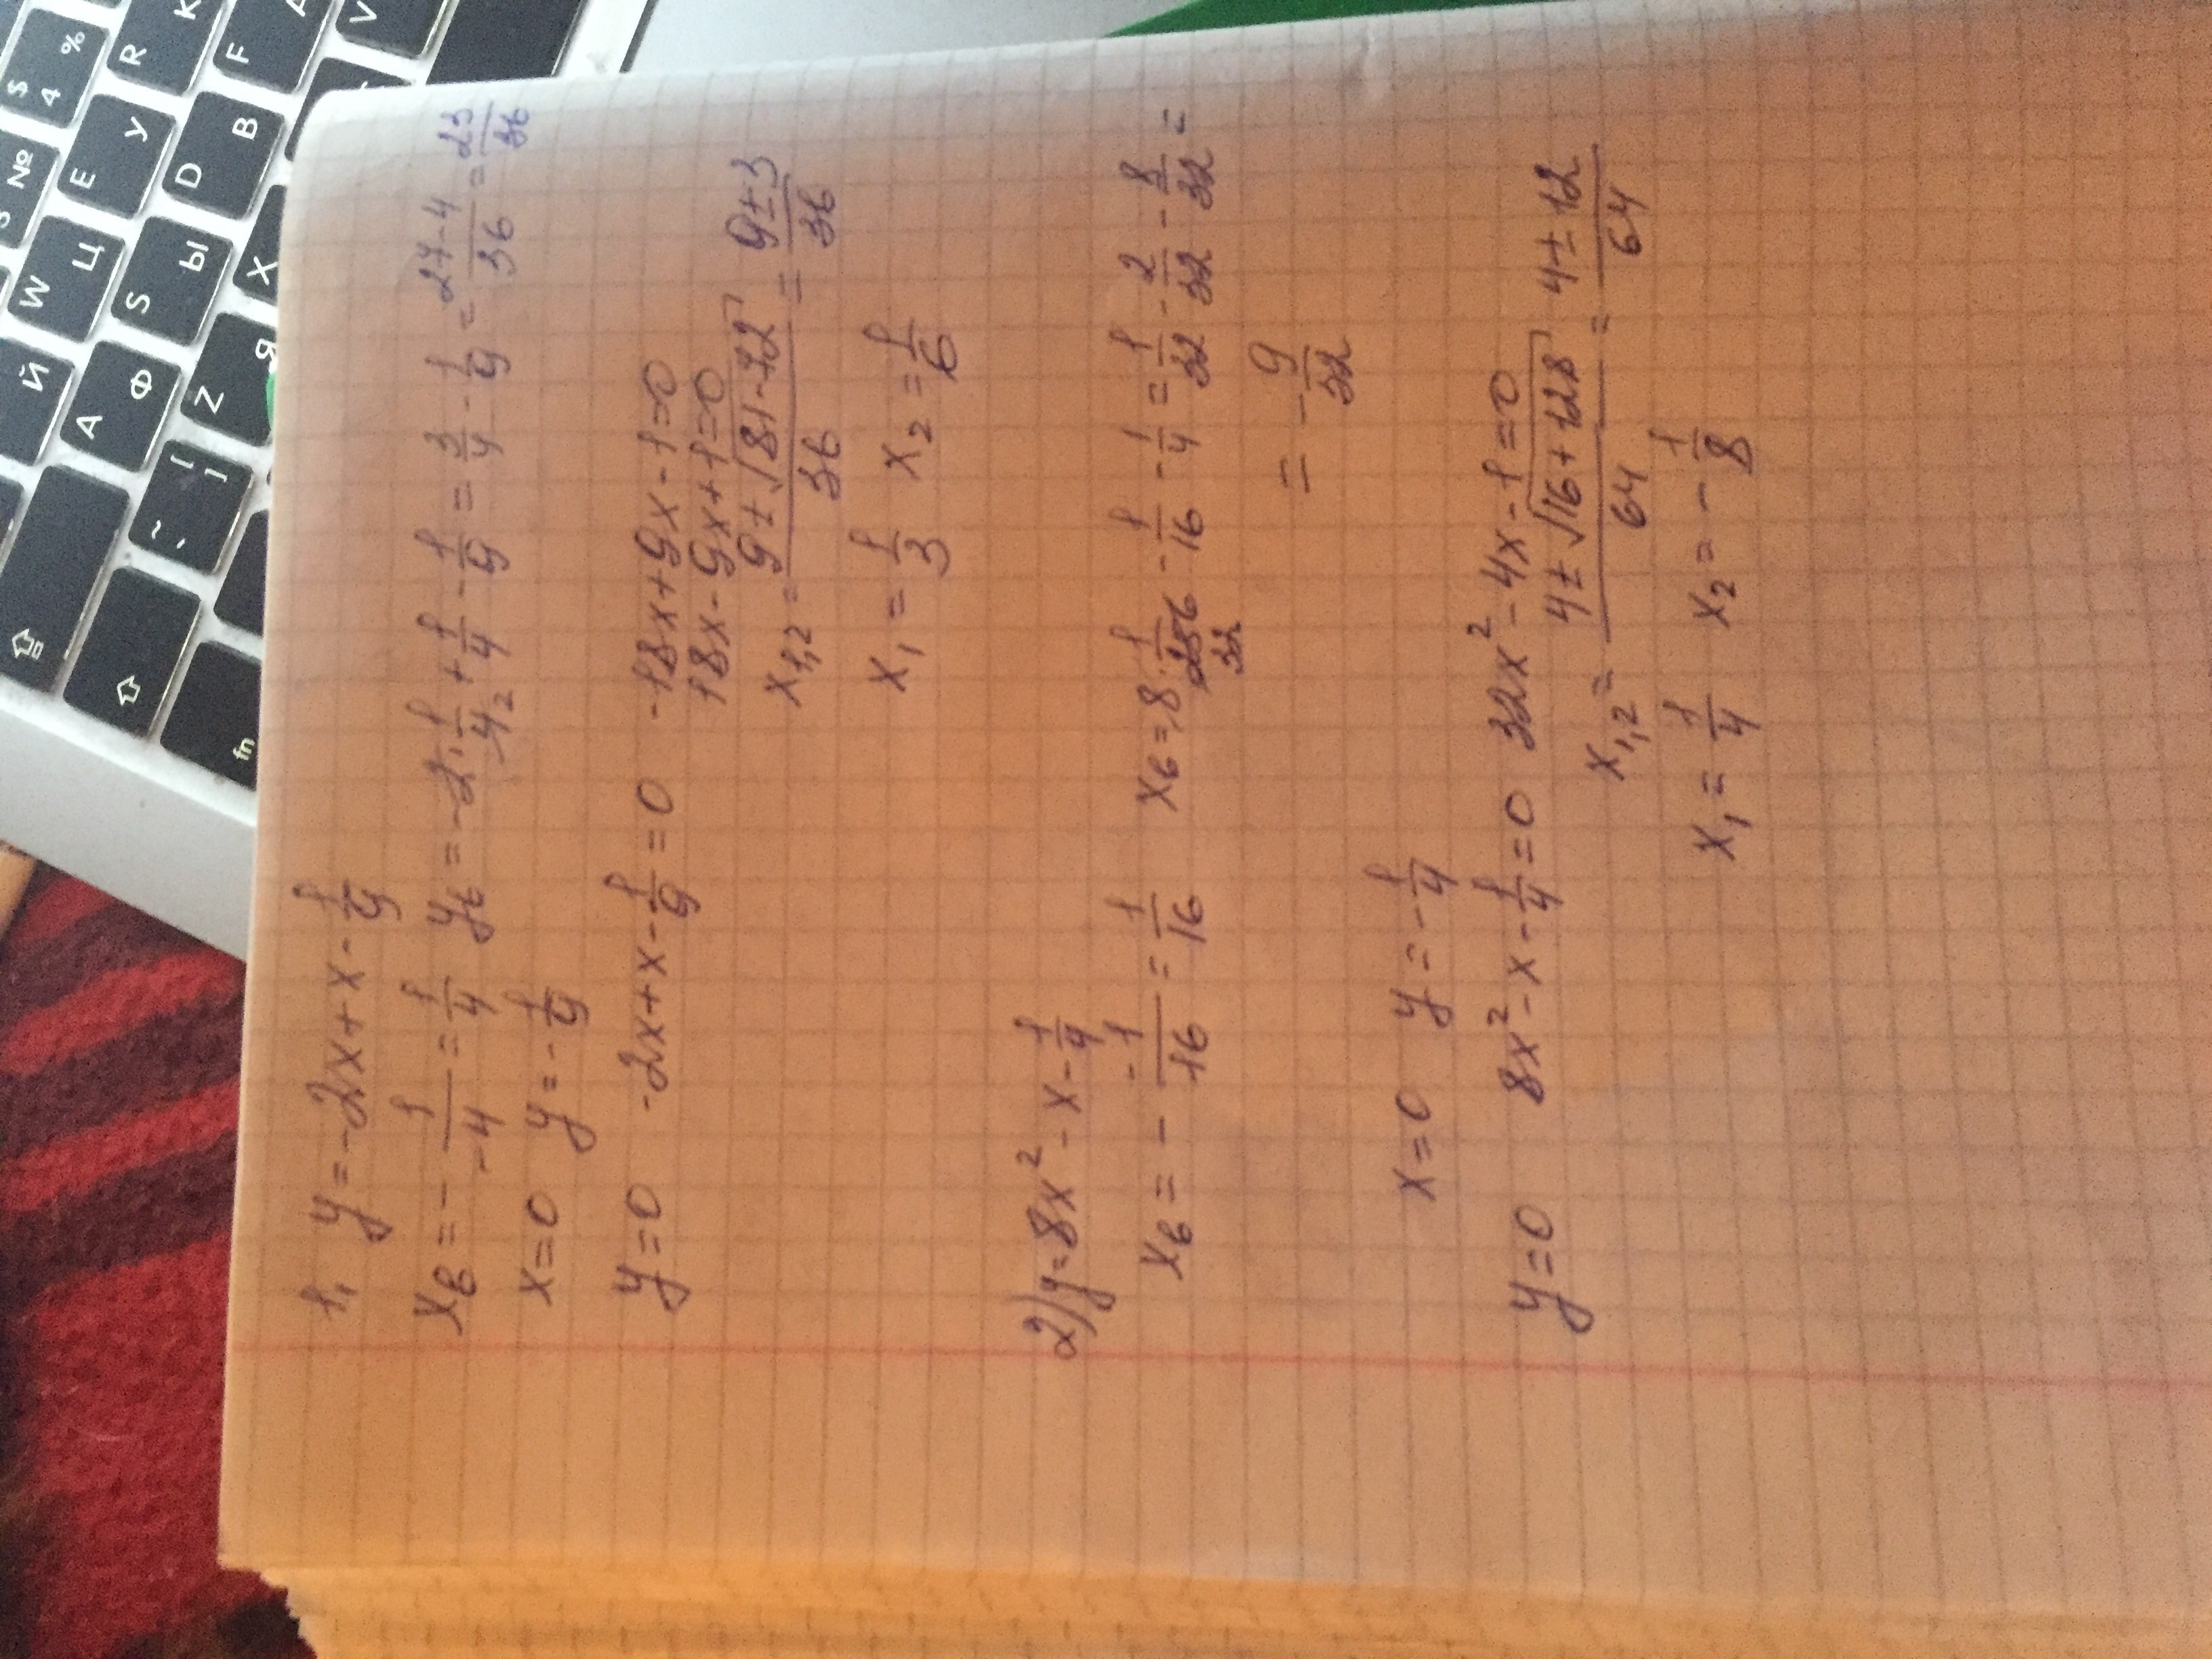 1, y = -2x + x - 1/9
x_в = - 1/-4 = 1/4 y_в = -2 · 1/4_2 + 1/4 - 1/9 = 3/4 - 1/9 = 27-4/36 = 23/36
x = 0 y = - 1/9
y = 0 -2x + x - 1/9 = 0 -18x + 9x - 1 = 0
18x - 9x + 1 = 0
x_1,2 = 9 ± √81 - 72 / 36 = 9 ± 3 / 36
x_1 = 1/3 x_2 = 1/6
2) y = 8x² - x - 1/4
x_в = - -1/16 = 1/16 x_в = 8 · 1/256 32 - 1/16 - 1/4 = 1/32 - 2/32 - 8/32 =
= - 9/32
x = 0 y = - 1/4
y = 0 8x² - x - 1/4 = 0 32x² - 4x - 1 = 0
x_1,2 = 4 ± √16 + 128 / 64 = 4 ± 12 / 64
x_1 = 1/4 x_2 = - 1/8
$ 4 %
№
R К
F А
V
E У
D В
W Ц
S Ы
X
Й
A Ф
Z Я
~
[ ]
fn